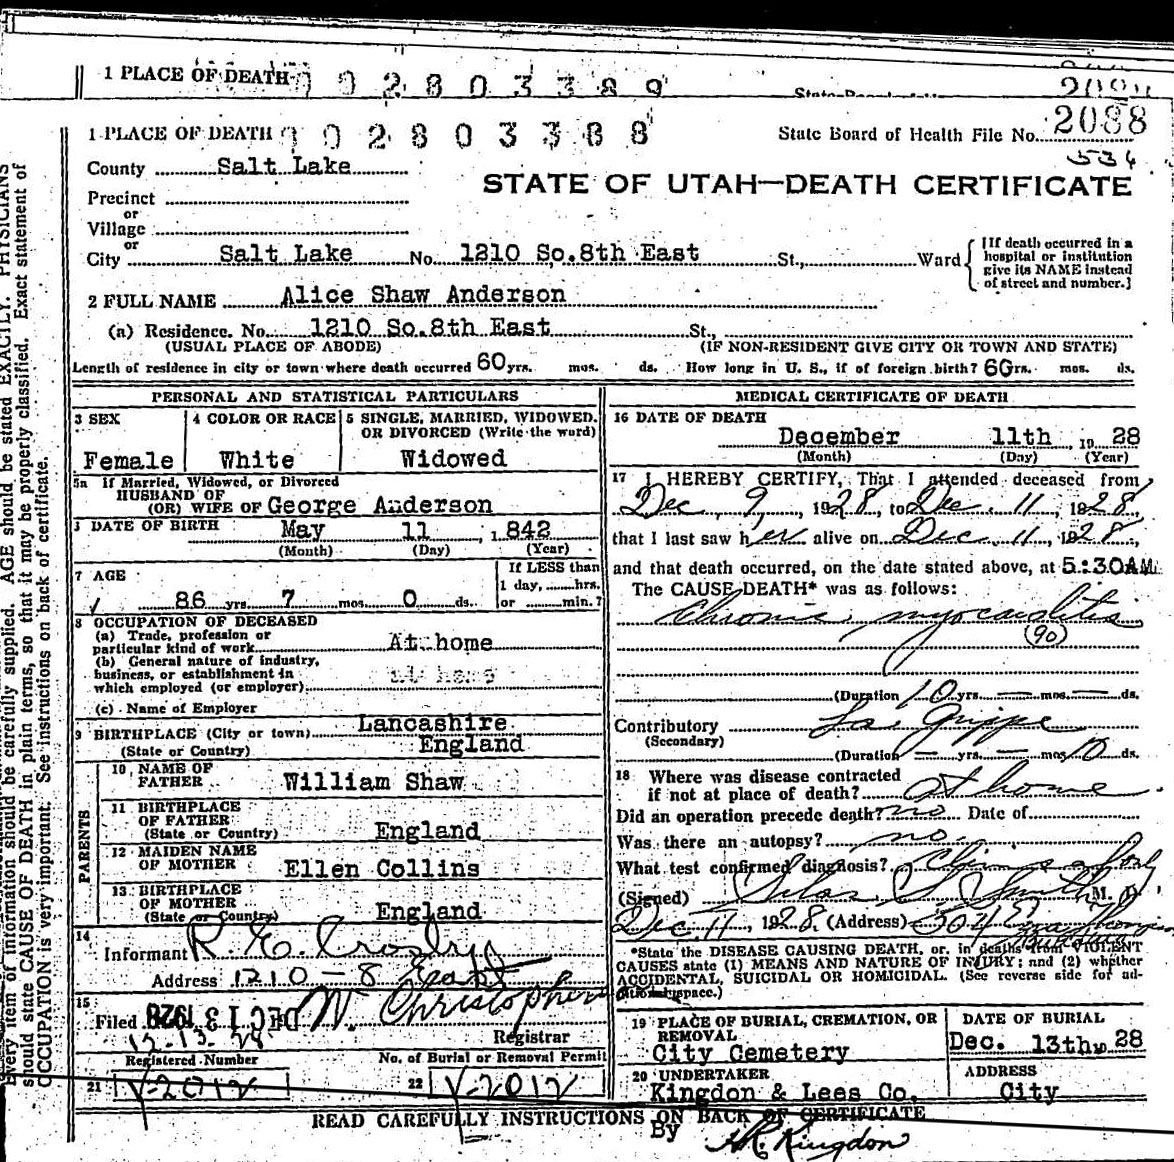 1 PLACE OF DEATH 1 0 2 8 0 3 3 8 9
1 PLACE OF DEATH 1 0 2 8 0 3 3 8 8 State Board of Health File No. 2088
534
County Salt Lake
STATE OF UTAH—DEATH CERTIFICATE
Precinct
or
Village
or
City Salt Lake No. 1210 So.8th East St., Ward
[If death occurred in a
hospital or institution
give its NAME instead
of street and number.]
2 FULL NAME Alice Shaw Anderson
(a) Residence. No. 1210 So.8th East St.,
(USUAL PLACE OF ABODE) (IF NON-RESIDENT GIVE CITY OR TOWN AND STATE)
Length of residence in city or town where death occurred 60 yrs. mos. ds. How long in U. S., if of foreign birth? 60 yrs. mos. ds.
PERSONAL AND STATISTICAL PARTICULARS
3 SEX
Female
4 COLOR OR RACE
White
5 SINGLE, MARRIED, WIDOWED,
OR DIVORCED (Write the word)
Widowed
5a If Married, Widowed, or Divorced
HUSBAND OF
(OR) WIFE OF George Anderson
DATE OF BIRTH May 11, 1842
(Month) (Day) (Year)
7 AGE
86 yrs. 7 mos. 0 ds.
If LESS than
1 day, hrs.
or min.?
8 OCCUPATION OF DECEASED
(a) Trade, profession or
particular kind of work At home
(b) General nature of industry,
business, or establishment in
which employed (or employer) at home
(c) Name of Employer
9 BIRTHPLACE (City or town) Lancashire
(State or Country) England
PARENTS
10 NAME OF
FATHER William Shaw
11 BIRTHPLACE
OF FATHER
(State or Country) England
12 MAIDEN NAME
OF MOTHER Ellen Collins
13 BIRTHPLACE
OF MOTHER
(State or Country) England
14
Informant R. E. Crosby
Address 1210 - 8 East
15
Filed DEC 13 1928 W. Christopherson
12-13-28 Registrar
Registered Number No. of Burial or Removal Permit
21 V-2012 22 V-2012
MEDICAL CERTIFICATE OF DEATH
16 DATE OF DEATH
December 11th 19 28
(Month) (Day) (Year)
17 I HEREBY CERTIFY, That I attended deceased from
Dec. 9, 1928, to Dec. 11, 1928,
that I last saw her alive on Dec 11, 1928,
and that death occurred, on the date stated above, at 5:30AM.
The CAUSE DEATH* was as follows:
Chronic myocarditis
(90)
(Duration 10 yrs. — mos. — ds.
Contributory La Grippe
(Secondary)
(Duration — yrs. — mos. 10 ds.
18 Where was disease contracted
if not at place of death? at home
Did an operation precede death? no Date of
Was there an autopsy? no
What test confirmed diagnosis?
(Signed) Silas S. Smith M. D.
Dec. 11, 1928. (Address) 504
*State the DISEASE CAUSING DEATH, or, in deaths from VIOLENT
CAUSES state (1) MEANS AND NATURE OF INJURY; and (2) whether
ACCIDENTAL, SUICIDAL OR HOMICIDAL. (See reverse side for ad-
ditional space.)
19 PLACE OF BURIAL, CREMATION, OR
REMOVAL
City Cemetery
DATE OF BURIAL
Dec. 13th 19 28
20 UNDERTAKER
Kingdon & Lees Co.
ADDRESS
City
READ CAREFULLY INSTRUCTIONS ON BACK OF CERTIFICATE
By
H.R. Kingdon
Every item of information should be carefully supplied. AGE should be stated EXACTLY. PHYSICIANS
should state CAUSE OF DEATH in plain terms, so that it may be properly classified. Exact statement of
OCCUPATION is very important. See instructions on back of certificate.